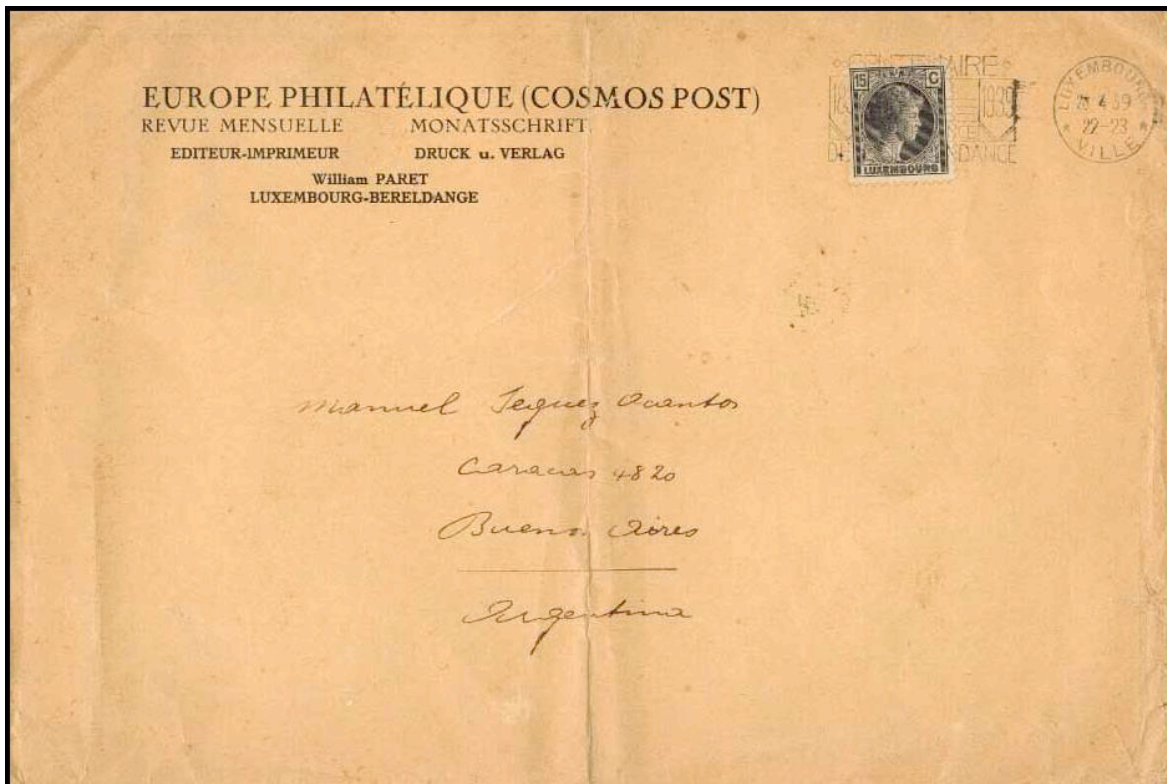 EUROPE PHILATÉLIQUE (COSMOS POST)
REVUE MENSUELLE MONATSSCHRIFT
EDITEUR-IMPRIMEUR DRUCK u. VERLAG
William PARET
LUXEMBOURG-BERELDANGE
15 C
LUXEMBOURG
1939
LUXEMBOURG
4 39
22-23
* VILLE *
Manuel Acantos
Caracas 4820
Buenos Aires
Argentina